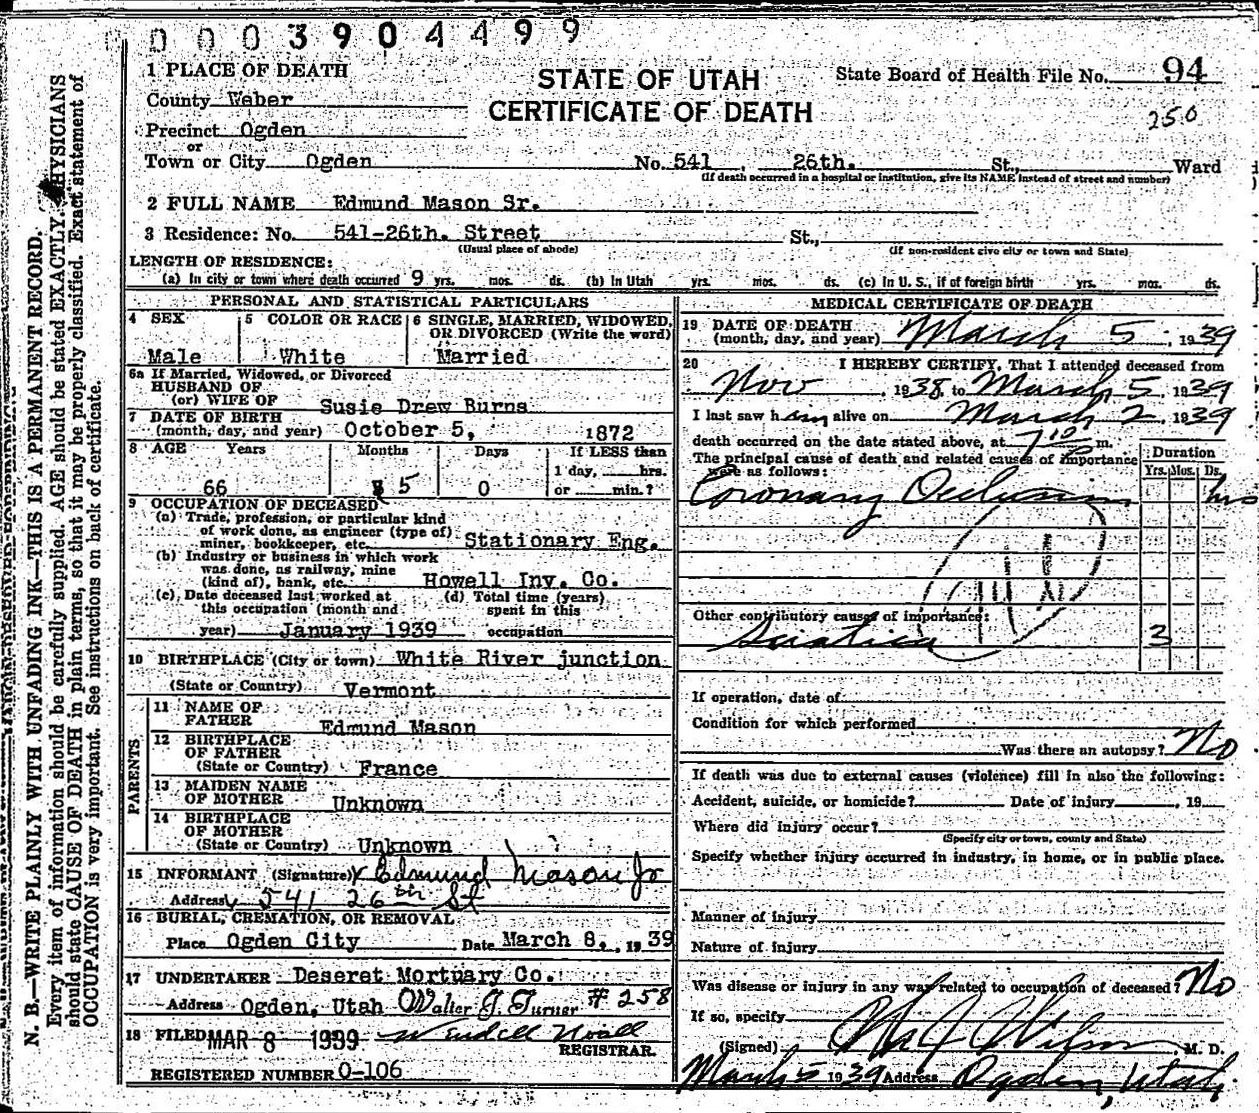 0003904499
1 PLACE OF DEATH
STATE OF UTAH
CERTIFICATE OF DEATH
State Board of Health File No. 94
250
County Weber
Precinct Ogden
or
Town or City Ogden No. 541 26th. St., Ward
(If death occurred in a hospital or institution, give its NAME instead of street and number)
2 FULL NAME Edmund Mason Sr.
3 Residence: No. 541-26th. Street St.,
(Usual place of abode) (If non-resident give city or town and State)
LENGTH OF RESIDENCE:
(a) In city or town where death occurred 9 yrs. mos. ds. (b) In Utah yrs. mos. ds. (c) In U. S., if of foreign birth yrs. mos. ds.
PERSONAL AND STATISTICAL PARTICULARS
4 SEX
Male
5 COLOR OR RACE
White
6 SINGLE, MARRIED, WIDOWED, OR DIVORCED (Write the word)
Married
6a If Married, Widowed, or Divorced
HUSBAND OF
(or) WIFE OF Susie Drew Burns
7 DATE OF BIRTH
(month, day, and year) October 5, 1872
8 AGE Years Months Days If LESS than
1 day, hrs.
66 5 0 or min.?
9 OCCUPATION OF DECEASED
(a) Trade, profession, or particular kind
of work done, as engineer (type of)
miner, bookkeeper, etc. Stationary Eng.
(b) Industry or business in which work
was done, as railway, mine
(kind of), bank, etc. Howell Inv. Co.
(c) Date deceased last worked at
this occupation (month and
year) January 1939
(d) Total time (years)
spent in this
occupation
10 BIRTHPLACE (City or town) White River junction
(State or Country) Vermont
PARENTS
11 NAME OF
FATHER Edmund Mason
12 BIRTHPLACE
OF FATHER
(State or Country) France
13 MAIDEN NAME
OF MOTHER Unknown
14 BIRTHPLACE
OF MOTHER
(State or Country) Unknown
15 INFORMANT (Signature) Edmund Mason Jr
Address 541 26th St
16 BURIAL, CREMATION, OR REMOVAL
Place Ogden City Date March 8, 1939
17 UNDERTAKER Deseret Mortuary Co.
Address Ogden, Utah Walter J. Turner #258
18 FILED MAR 8 1939 Wendell
REGISTRAR.
REGISTERED NUMBER 0-106
MEDICAL CERTIFICATE OF DEATH
19 DATE OF DEATH
(month, day, and year) March 5, 1939
20 I HEREBY CERTIFY, That I attended deceased from
Nov, 1938, to March 5, 1939
I last saw him alive on March 2, 1939
death occurred on the date stated above, at 7 10 P m.
The principal cause of death and related causes of importance
were as follows:
Duration
Yrs. Mos. Ds.
Coronary Occlusion hrs
Other contributory causes of importance:
Sciatica 3
If operation, date of
Condition for which performed
Was there an autopsy? No
If death was due to external causes (violence) fill in also the following:
Accident, suicide, or homicide? Date of injury , 19
Where did injury occur?
(Specify city or town, county and State)
Specify whether injury occurred in industry, in home, or in public place.
Manner of injury
Nature of injury
Was disease or injury in any way related to occupation of deceased? No
If so, specify
(Signed) Wilson, M. D.
March 5 1939 Address Ogden, Utah
N. B.—WRITE PLAINLY WITH UNFADING INK—THIS IS A PERMANENT RECORD.
Every item of information should be carefully supplied. AGE should be stated EXACTLY. PHYSICIANS
should state CAUSE OF DEATH in plain terms, so that it may be properly classified. Exact statement of
OCCUPATION is very important. See instructions on back of certificate.